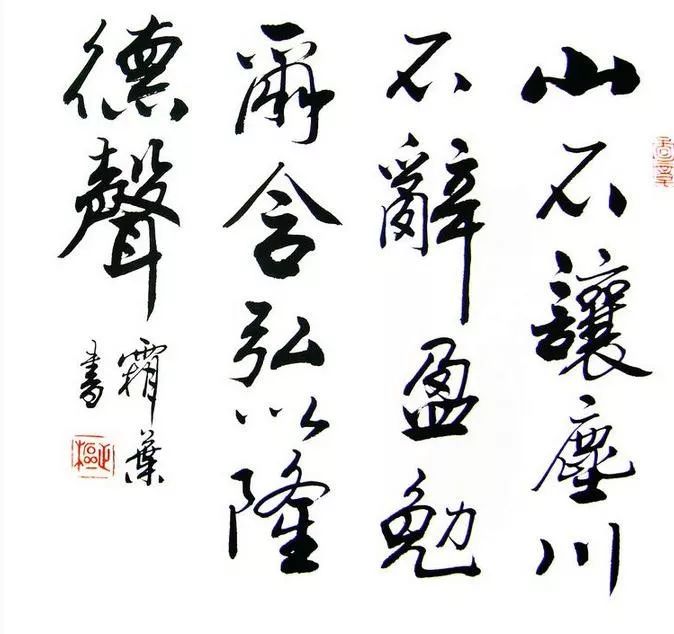 山不讓塵川
不辭盈勉
爾含弘以隆
德聲
霜葉
書